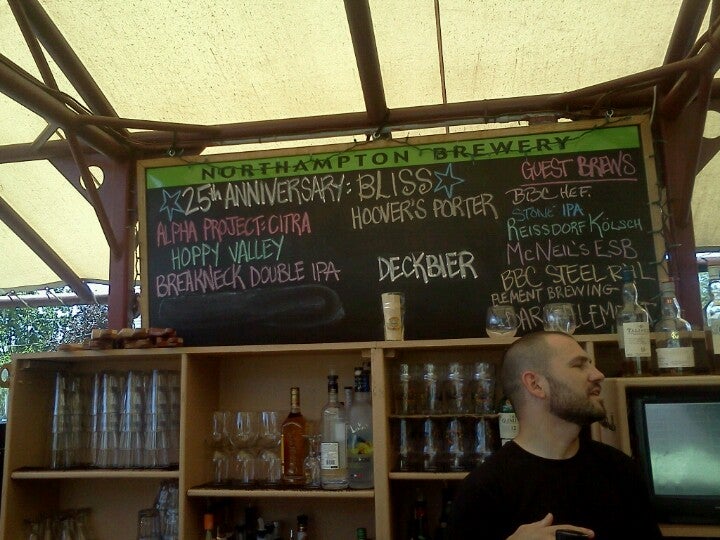 NORTHAMPTON BREWERY
25th ANNIVERSARY: BLISS
ALPHA PROJECT: CITRA
HOPPY VALLEY
BREAKNECK DOUBLE IPA
HOOVER'S PORTER
DECKBIER
GUEST BREWS
BBC HEF.
STONE IPA
REISSDORF KÖLSCH
MCNEIL'S ESB
BBC STEEL RAIL
ELEMENT BREWING